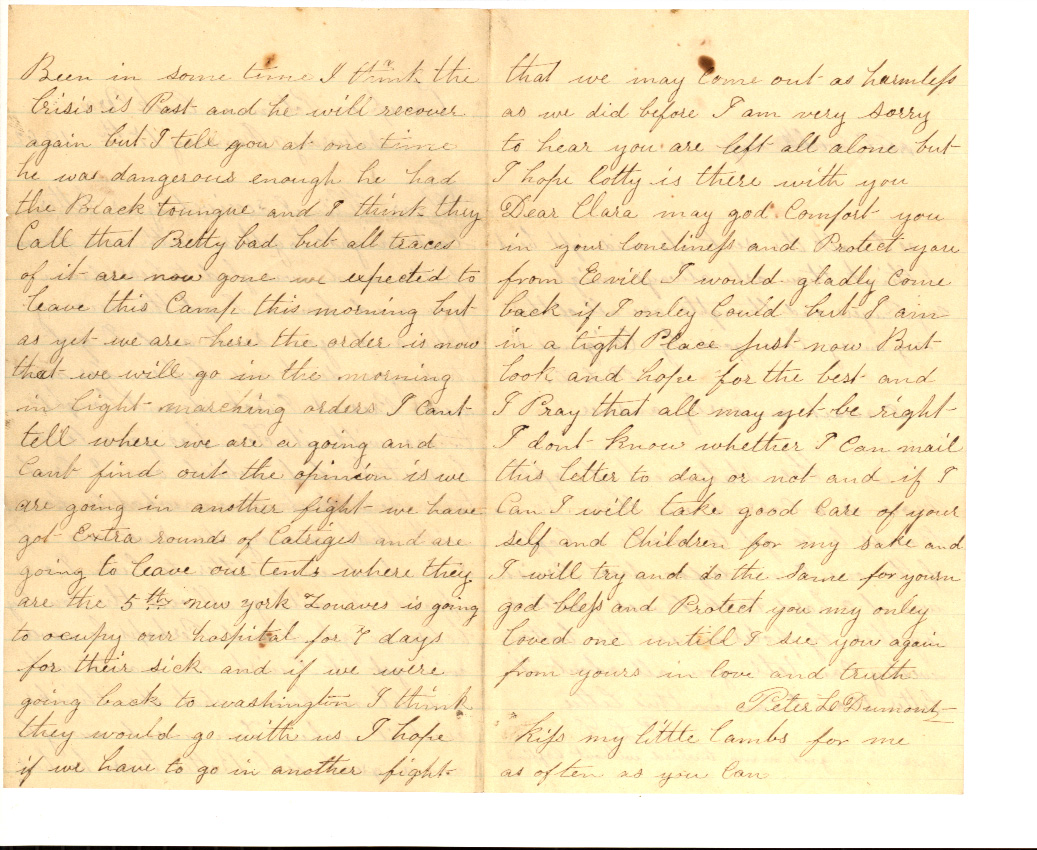 Been in some time I think the
Crisis is Past and he will recover
again but I tell you at one time
he was dangerous enough he had
the Black toungue and I think they
Call that Pretty bad but all traces
of it are now gone we expected to
leave this Camp this morning but
as yet we are here the order is now
that we will go in the morning
in light marching orders I Cant
tell where we are a going and
Cant find out the opinion is we
are going in another fight we have
got Extra rounds of Catriges and are
going to leave our tents where they
are the 5th new york Zouaves is going
to ocupy our hospital for 7 days
for their sick and if we were
going back to washington I think
they would go with us I hope
if we have to go in another fight
that we may Come out as harmless
as we did before I am very sorry
to hear you are left all alone but
I hope Cotty is there with you
Dear Clara may god Comfort you
in your loneliness and Protect you
from Evill I would gladly Come
back if I onley Could but I am
in a tight Place just now But
look and hope for the best and
I Pray that all may yet be right
I dont know whether I Can mail
this letter to day or not and if I
Can I will take good Care of your
self and Children for my sake and
I will try and do the Same for yourn
god bless and Protect you my onley
loved one untill I see you again
from yours in love and truth
Peter L Dumont
kiss my little lambs for me
as often as you Can